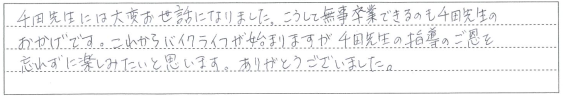 千田先生には大変お世話になりました。こうして無事卒業できるのも千田先生の
おかげです。これからバイクライフが始まりますが千田先生の指導のご恩を
忘れずに楽しみたいと思います。ありがとうございました。